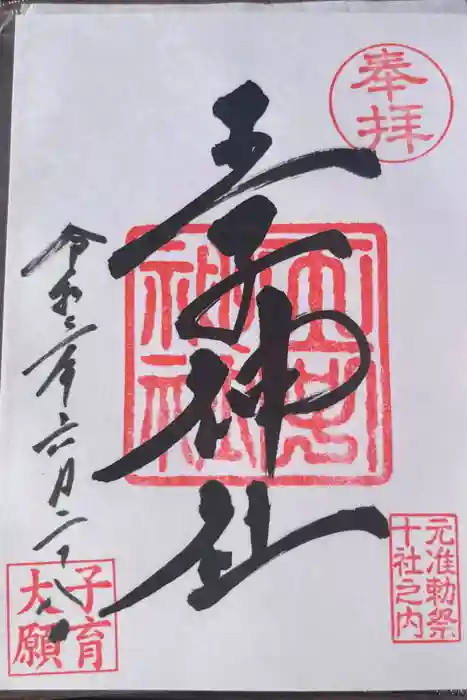 奉拝
王子神社
王子神社
元准勅祭
十社之内
令和三年六月二十八日
子育
大願